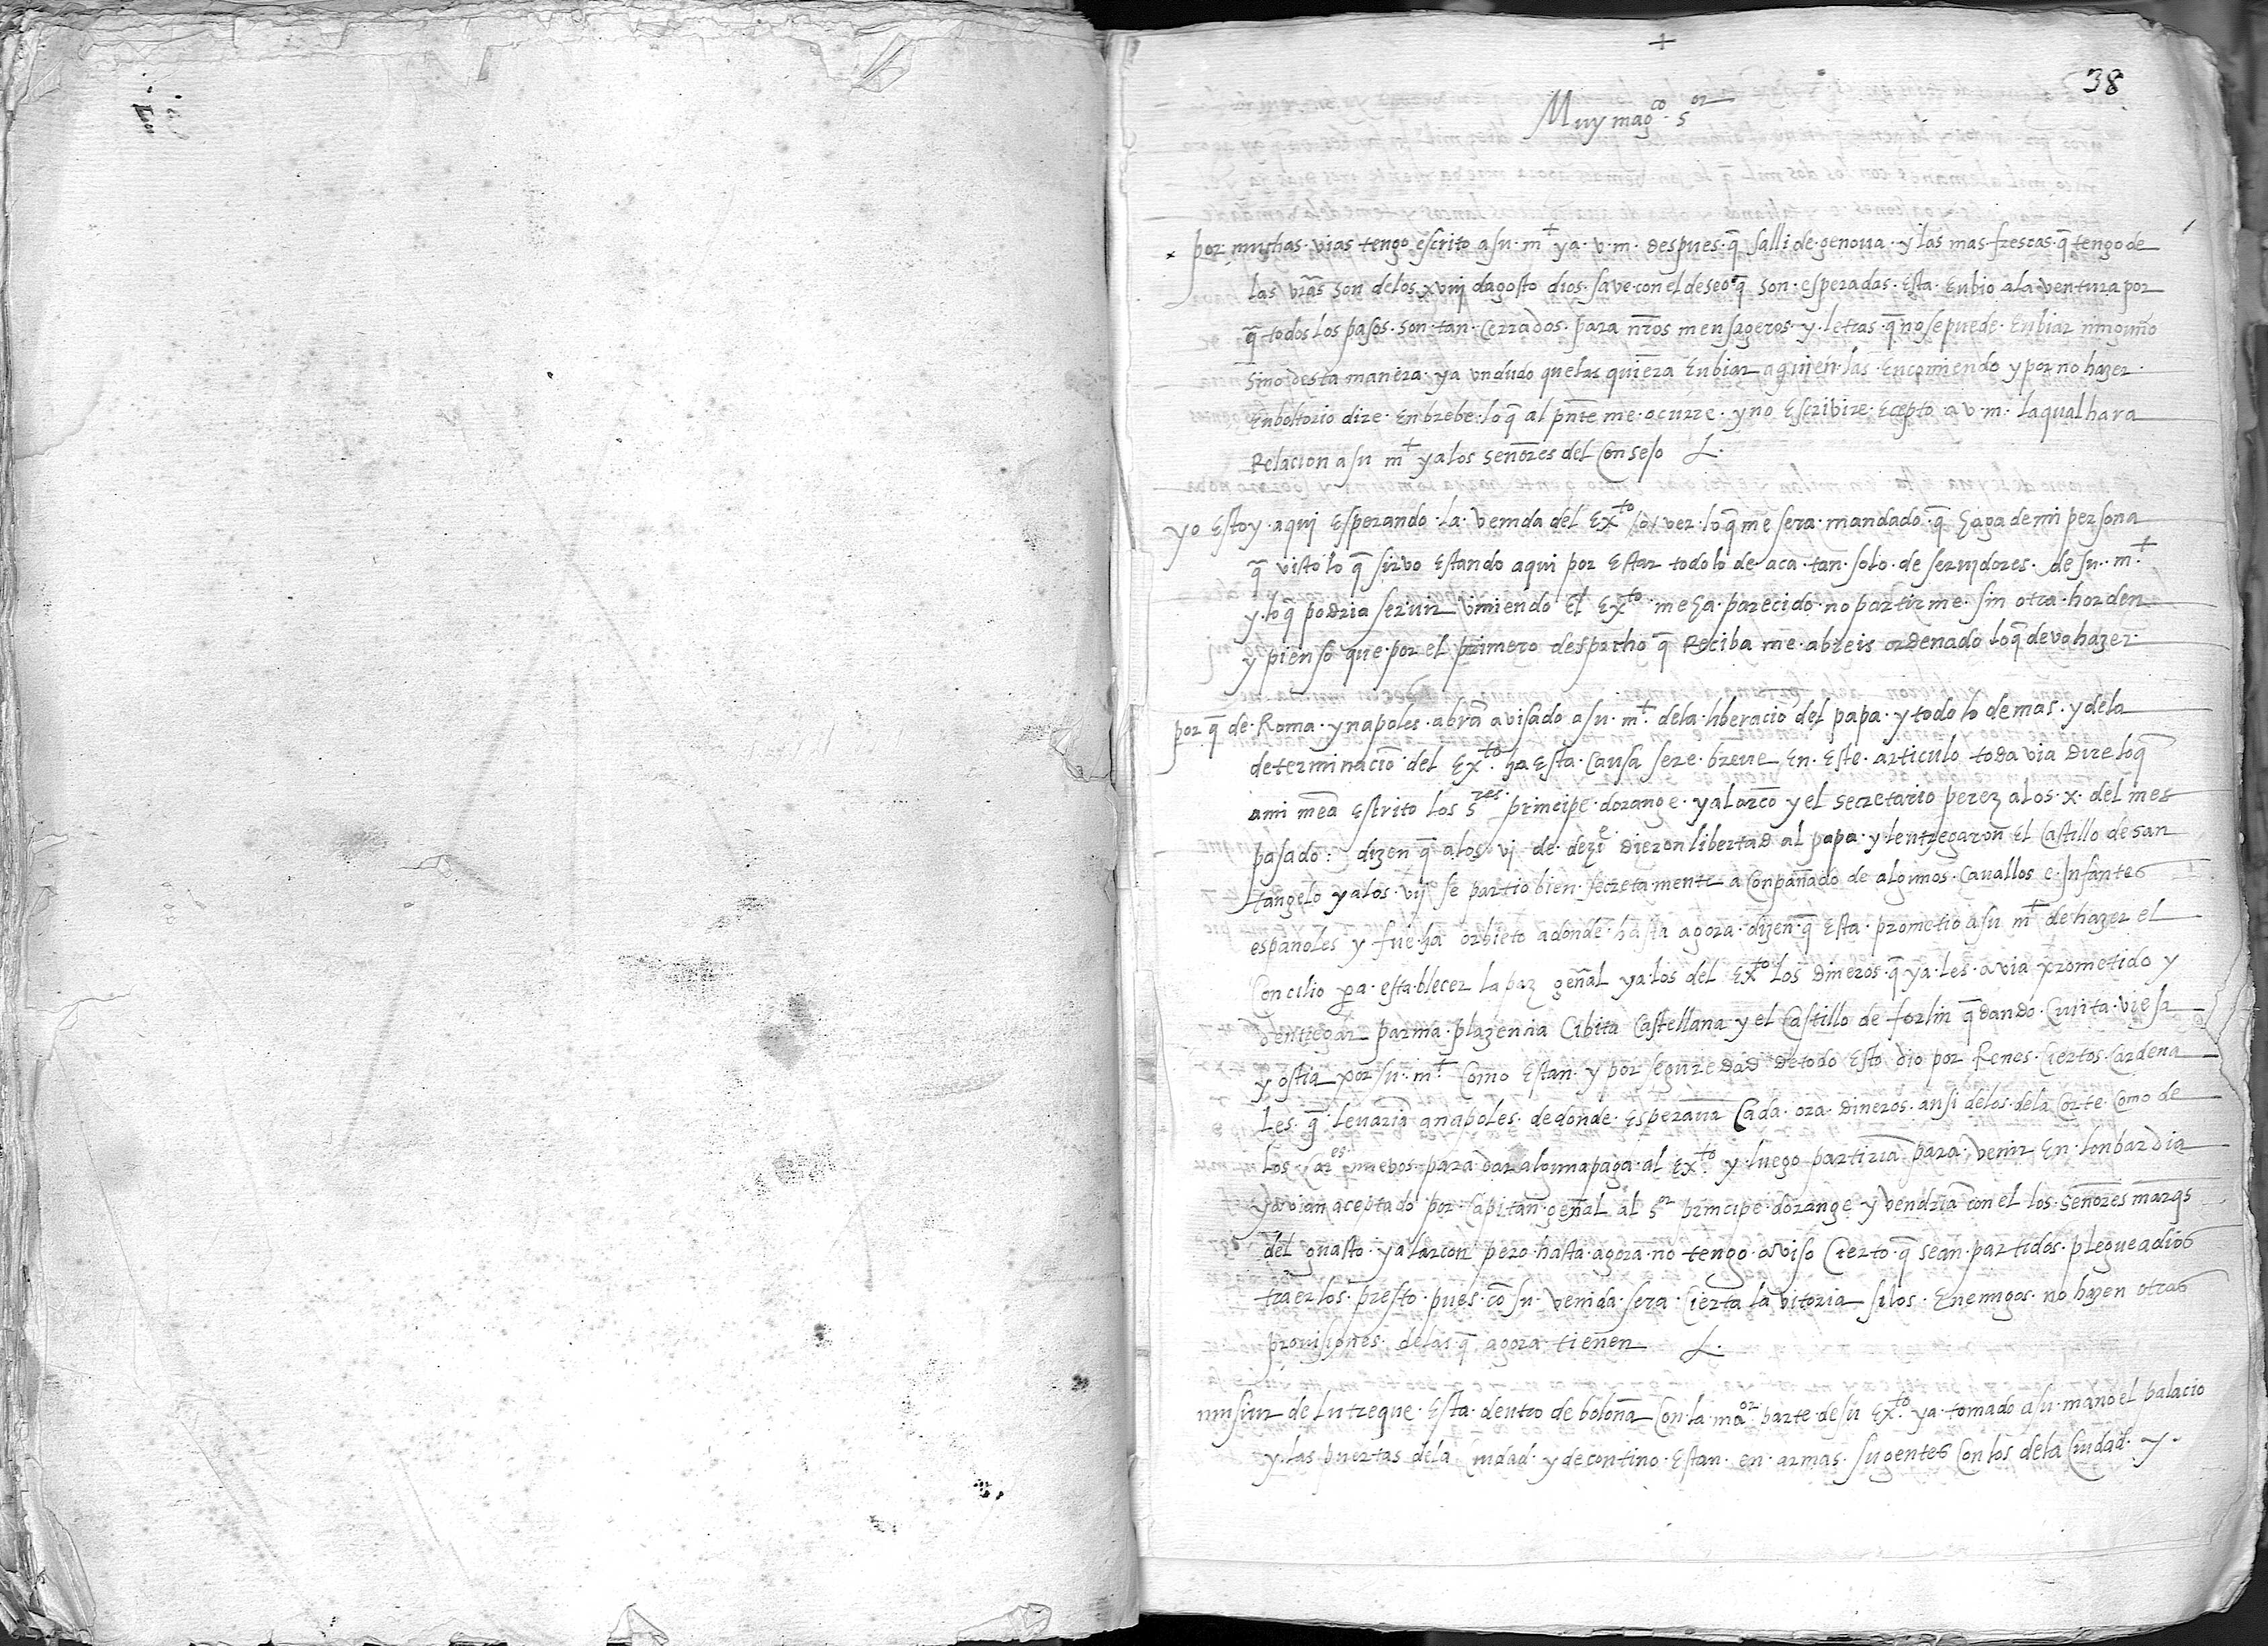 +
38
Muy mag.co s.or
por muchas vias tengo escrito a su m.t y a v. m. despues q̄ salli de genoua y las mas frescas q̄ tengo de
las vr̄as son delos xviij dagosto dios save con el deseo q̄ son esperadas esta enbio ala ventura por
q̄ todos los pasos son tan cerrados para nr̄os mensageros y letras q̄ no se puede enbiar ninguno
sino desta manera y a un dudo que las quiera enbiar a quien las encomiendo y por no hazer
enboltorio dire en brebe lo q̄ al pn̄te me ocurre y no escribire ecepto a v. m. la qual hara
Relacion a su m.t y a los señores del Consejo
yo estoy aqui esperando la venida del ex.to a ver lo q̄ me sera mandado q̄ haga de mi persona
q̄ visto lo q̄ sirvo estando aqui por estar todo lo de aca tan solo de seruidores de su m.t
y lo q̄ podria seruir viniendo el ex.to me ha parecido no partirme sin otra horden
y pienso que por el primero despacho q̄ Reciba me abreis ordenado lo q̄ devo hazer
por q̄ de Roma y napoles abrā avisado a su m.t dela liberaciō del papa y todo lo demas y dela
determinaciō del ex.to ha esta causa sere breue en este articulo toda via dire lo q̄
a mi mea escrito los s.res principe dorange y alarcō y el secretario perez a los x del mes
pasado: dizen q̄ a los vj de dezi.e dieron libertad al papa y lentregaron el Castillo de san
tangelo y a los vij se partio bien secretamente aconpañado de algunos cavallos e infantes
españoles y fue ha orbieto adonde hasta agora dizen q̄ esta prometio a su m.t de hazer el
Concilio pa establecer la paz gen̄al y a los del ex.to los dineros q̄ ya les avia prometido y
dentregar parma plazencia Cibita Castellana y el Castillo de forlin q̄dando Ciuita vieja
y ostia por su m.t Como estan y por seguredad de todo esto dio por Renes ciertos cardena
les q̄ levariā a napoles de donde esperavā Cada ora dineros ansi delos dela Corte Como de
los Car.es nuebos para dar alguna paga al ex.to y luego partiriā para venir en lonbardia
y avian aceptado por capitan gen̄al al s.or principe dorange y vendriā con el los señores marq̄s
del guasto y alarcon pero hasta agora no tengo aviso cierto q̄ sean partidos plegue a dios
traerlos presto pues cō su venida sera cierta la vitoria si los enemigos no hazen otras
prouisiones delas q̄ agora tienen
musiur de lutreque esta dentro de boloña Con la ma.or parte de su ex.to y a tomado a su mano el palacio
y las puertas dela Ciudad y de contino estan en armas su gentes Con los dela Ciudad y